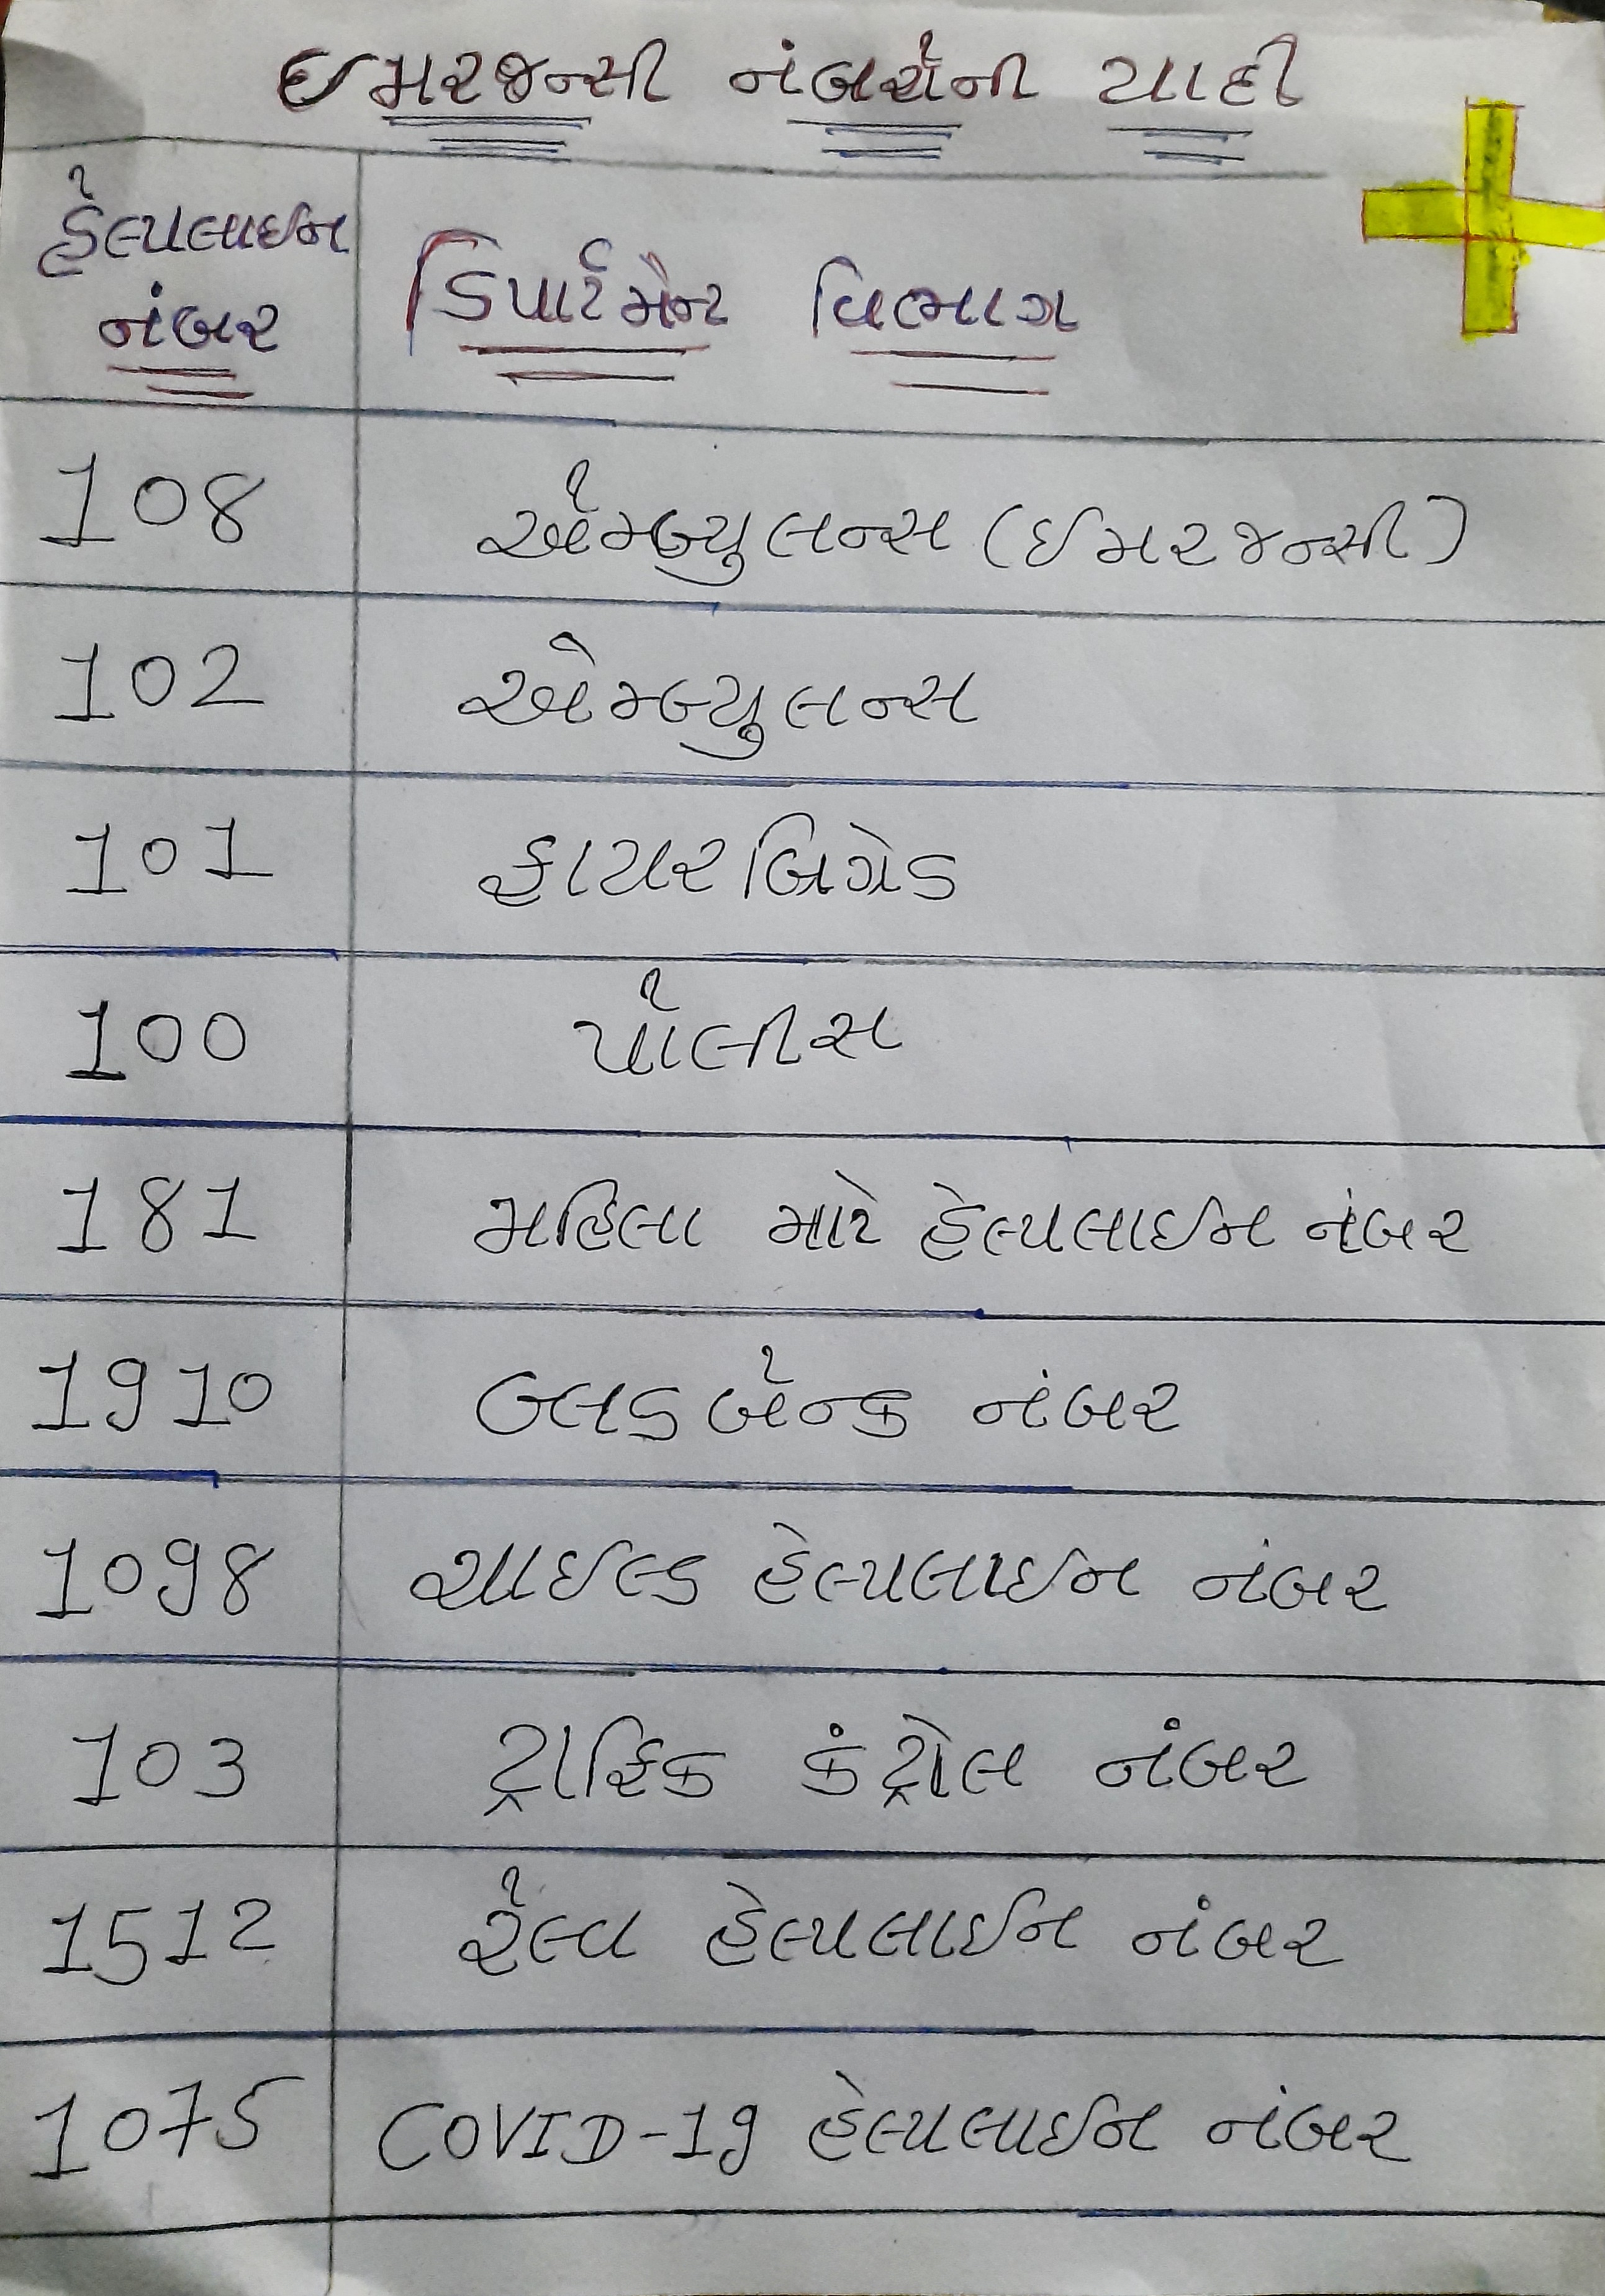 ઈમરજન્સી નંબરોની યાદી
હેલ્પલાઈન નંબર
ડિપાર્ટમેન્ટ વિભાગ
108 એમ્બ્યુલન્સ (ઈમરજન્સી)
102 એમ્બ્યુલન્સ
101 ફાયરબ્રિગેડ
100 પોલીસ
181 મહિલા માટે હેલ્પલાઈન નંબર
1910 બ્લડબેન્ક નંબર
1098 ચાઈલ્ડ હેલ્પલાઈન નંબર
103 ટ્રાફિક કંટ્રોલ નંબર
1512 રેલ્વે હેલ્પલાઈન નંબર
1075 COVID-19 હેલ્પલાઈન નંબર